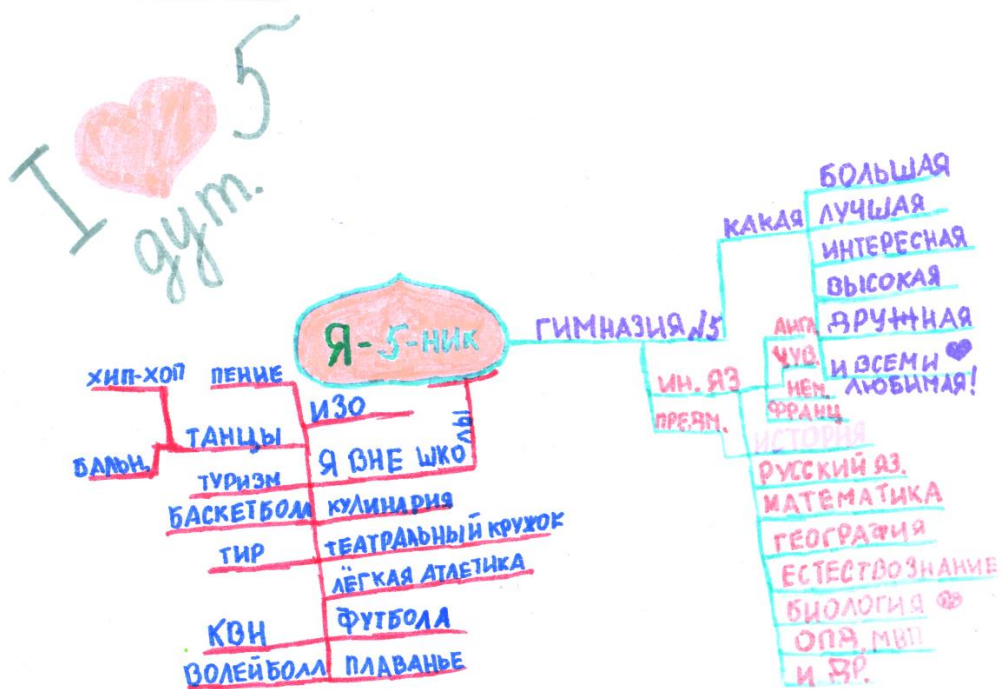 I ♥ 5
гут.
Я-5-НИК
ГИМНАЗИЯ №5
КАКАЯ
БОЛЬШАЯ
ЛУЧШАЯ
ИНТЕРЕСНАЯ
ВЫСОКАЯ
ДРУЖНАЯ
И ВСЕМИ ♥
ЛЮБИМАЯ!
ИН. ЯЗ
АНГЛ
ЧУВ.
НЕМ.
ФРАНЦ
ПРЕДМ.
ИСТОРИЯ
РУССКИЙ ЯЗ.
МАТЕМАТИКА
ГЕОГРАФИЯ
ЕСТЕСТВОЗНАНИЕ
БИОЛОГИЯ ♥
ОПД, МВП
И ДР.
Я ВНЕ ШКОЛЫ
ПЕНИЕ
ИЗО
ХИП-ХОП
ТАНЦЫ
БАЛЬН.
ТУРИЗМ
БАСКЕТБОЛЛ
КУЛИНАРИЯ
ТИР
ТЕАТРАЛЬНЫЙ КРУЖОК
ЛЁГКАЯ АТЛЕТИКА
ФУТБОЛЛ
КВН
ВОЛЕЙБОЛЛ
ПЛАВАНЬЕ